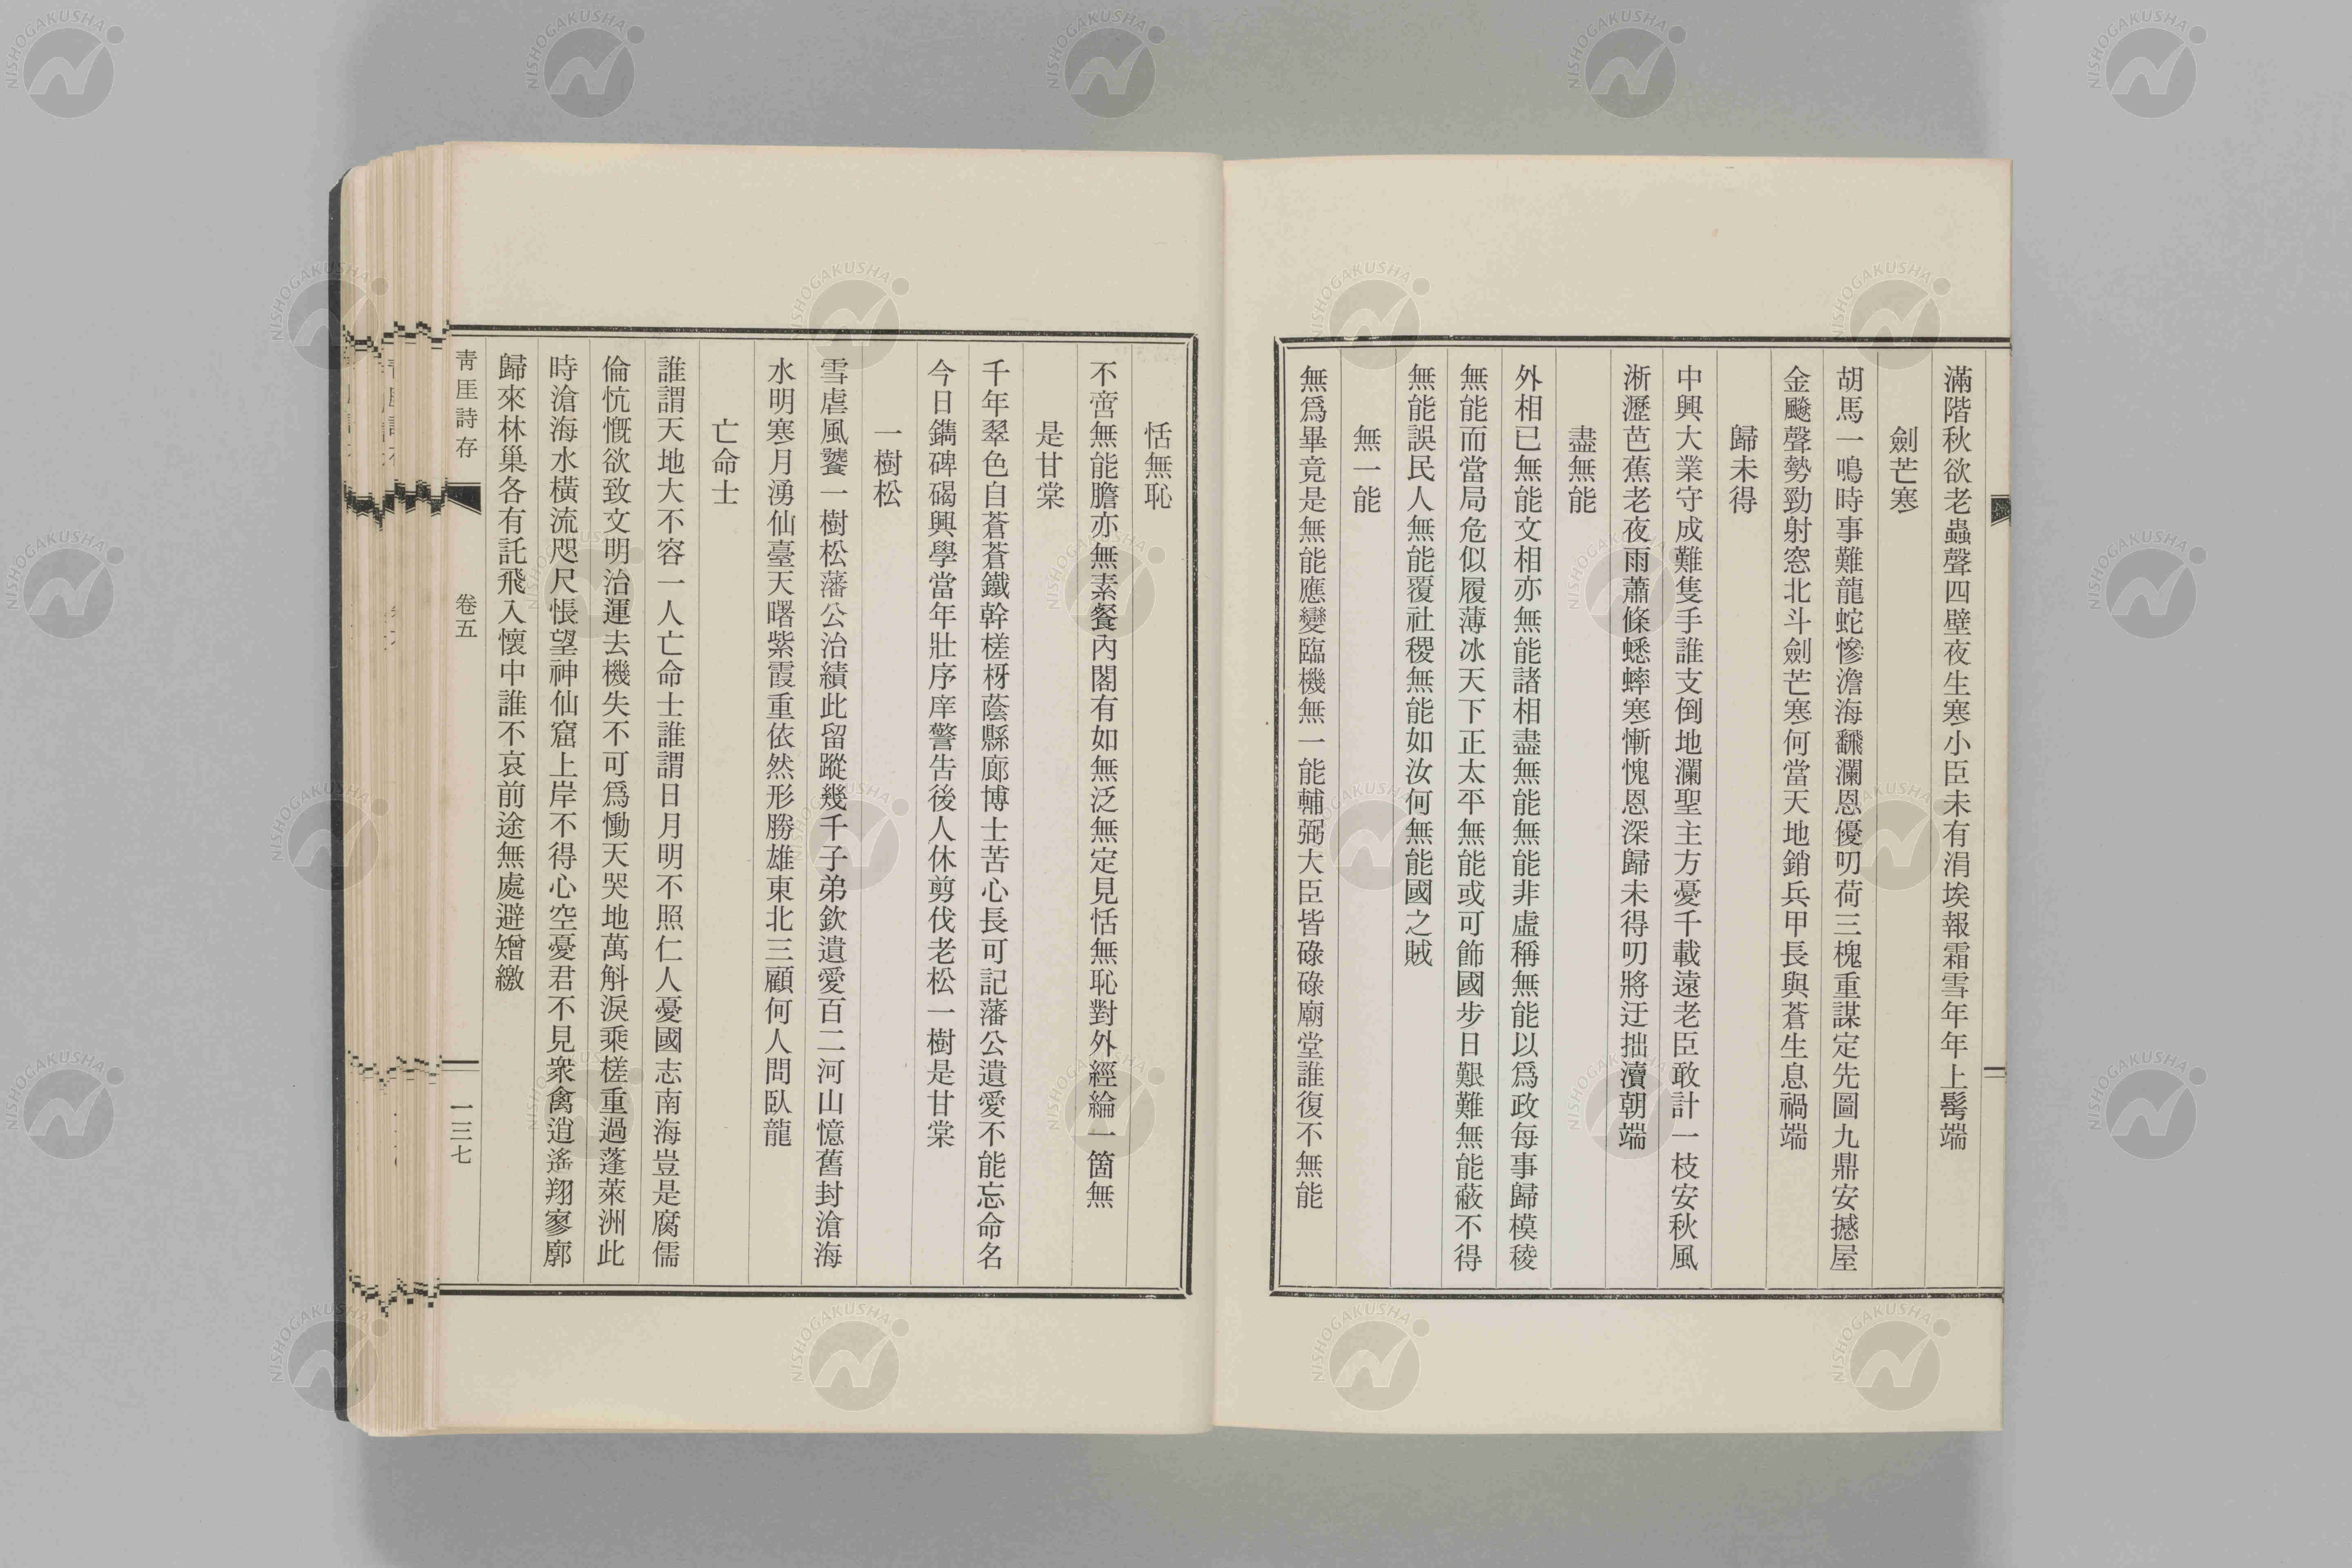 滿階秋欲老蟲聲四壁夜生寒小臣未有涓埃報霜雪年年上鬂端
劍芒寒
胡馬一鳴時事難龍蛇慘澹海飜瀾恩優叨荷三槐重謀定先圖九鼎安撼屋
金飈聲勢勁射窓北斗劍芒寒何當天地銷兵甲長與蒼生息禍端
歸未得
中興大業守成難隻手誰支倒地瀾聖主方憂千載遠老臣敢計一枝安秋風
淅瀝芭蕉老夜雨蕭條蟋蟀寒慚愧恩深歸未得叨將迂拙瀆朝端
盡無能
外相已無能文相亦無能諸相盡無能無能非虛稱無能以爲政每事歸模稜
無能而當局危似履薄冰天下正太平無能或可飾國步日艱難無能蔽不得
無能誤民人無能覆社稷無能如汝何無能國之賊
無一能
無爲畢竟是無能應變臨機無一能輔弼大臣皆碌碌廟堂誰復不無能
恬無恥
不啻無能膽亦無素餐內閣有如無泛無定見恬無恥對外經綸一箇無
是甘棠
千年翠色自蒼蒼鐵幹槎枒蔭縣廊博士苦心長可記藩公遺愛不能忘命名
今日鐫碑碣興學當年壯序庠警告後人休剪伐老松一樹是甘棠
一樹松
雪虐風饕一樹松藩公治績此留蹤幾千子弟欽遺愛百二河山憶舊封滄海
水明寒月湧仙臺天曙紫霞重依然形勝雄東北三顧何人問臥龍
亡命士
誰謂天地大不容一人亡命士誰謂日月明不照仁人憂國志南海豈是腐儒
倫忼慨欲致文明治運去機失不可爲慟天哭地萬斛淚乘槎重過蓬萊洲此
時滄海水橫流咫尺悵望神仙窟上岸不得心空憂君不見衆禽逍遙翔寥廓
歸來林巢各有託飛入懷中誰不哀前途無處避矰繳
靑厓詩存
卷五
一三七
NISHOGAKUSHA